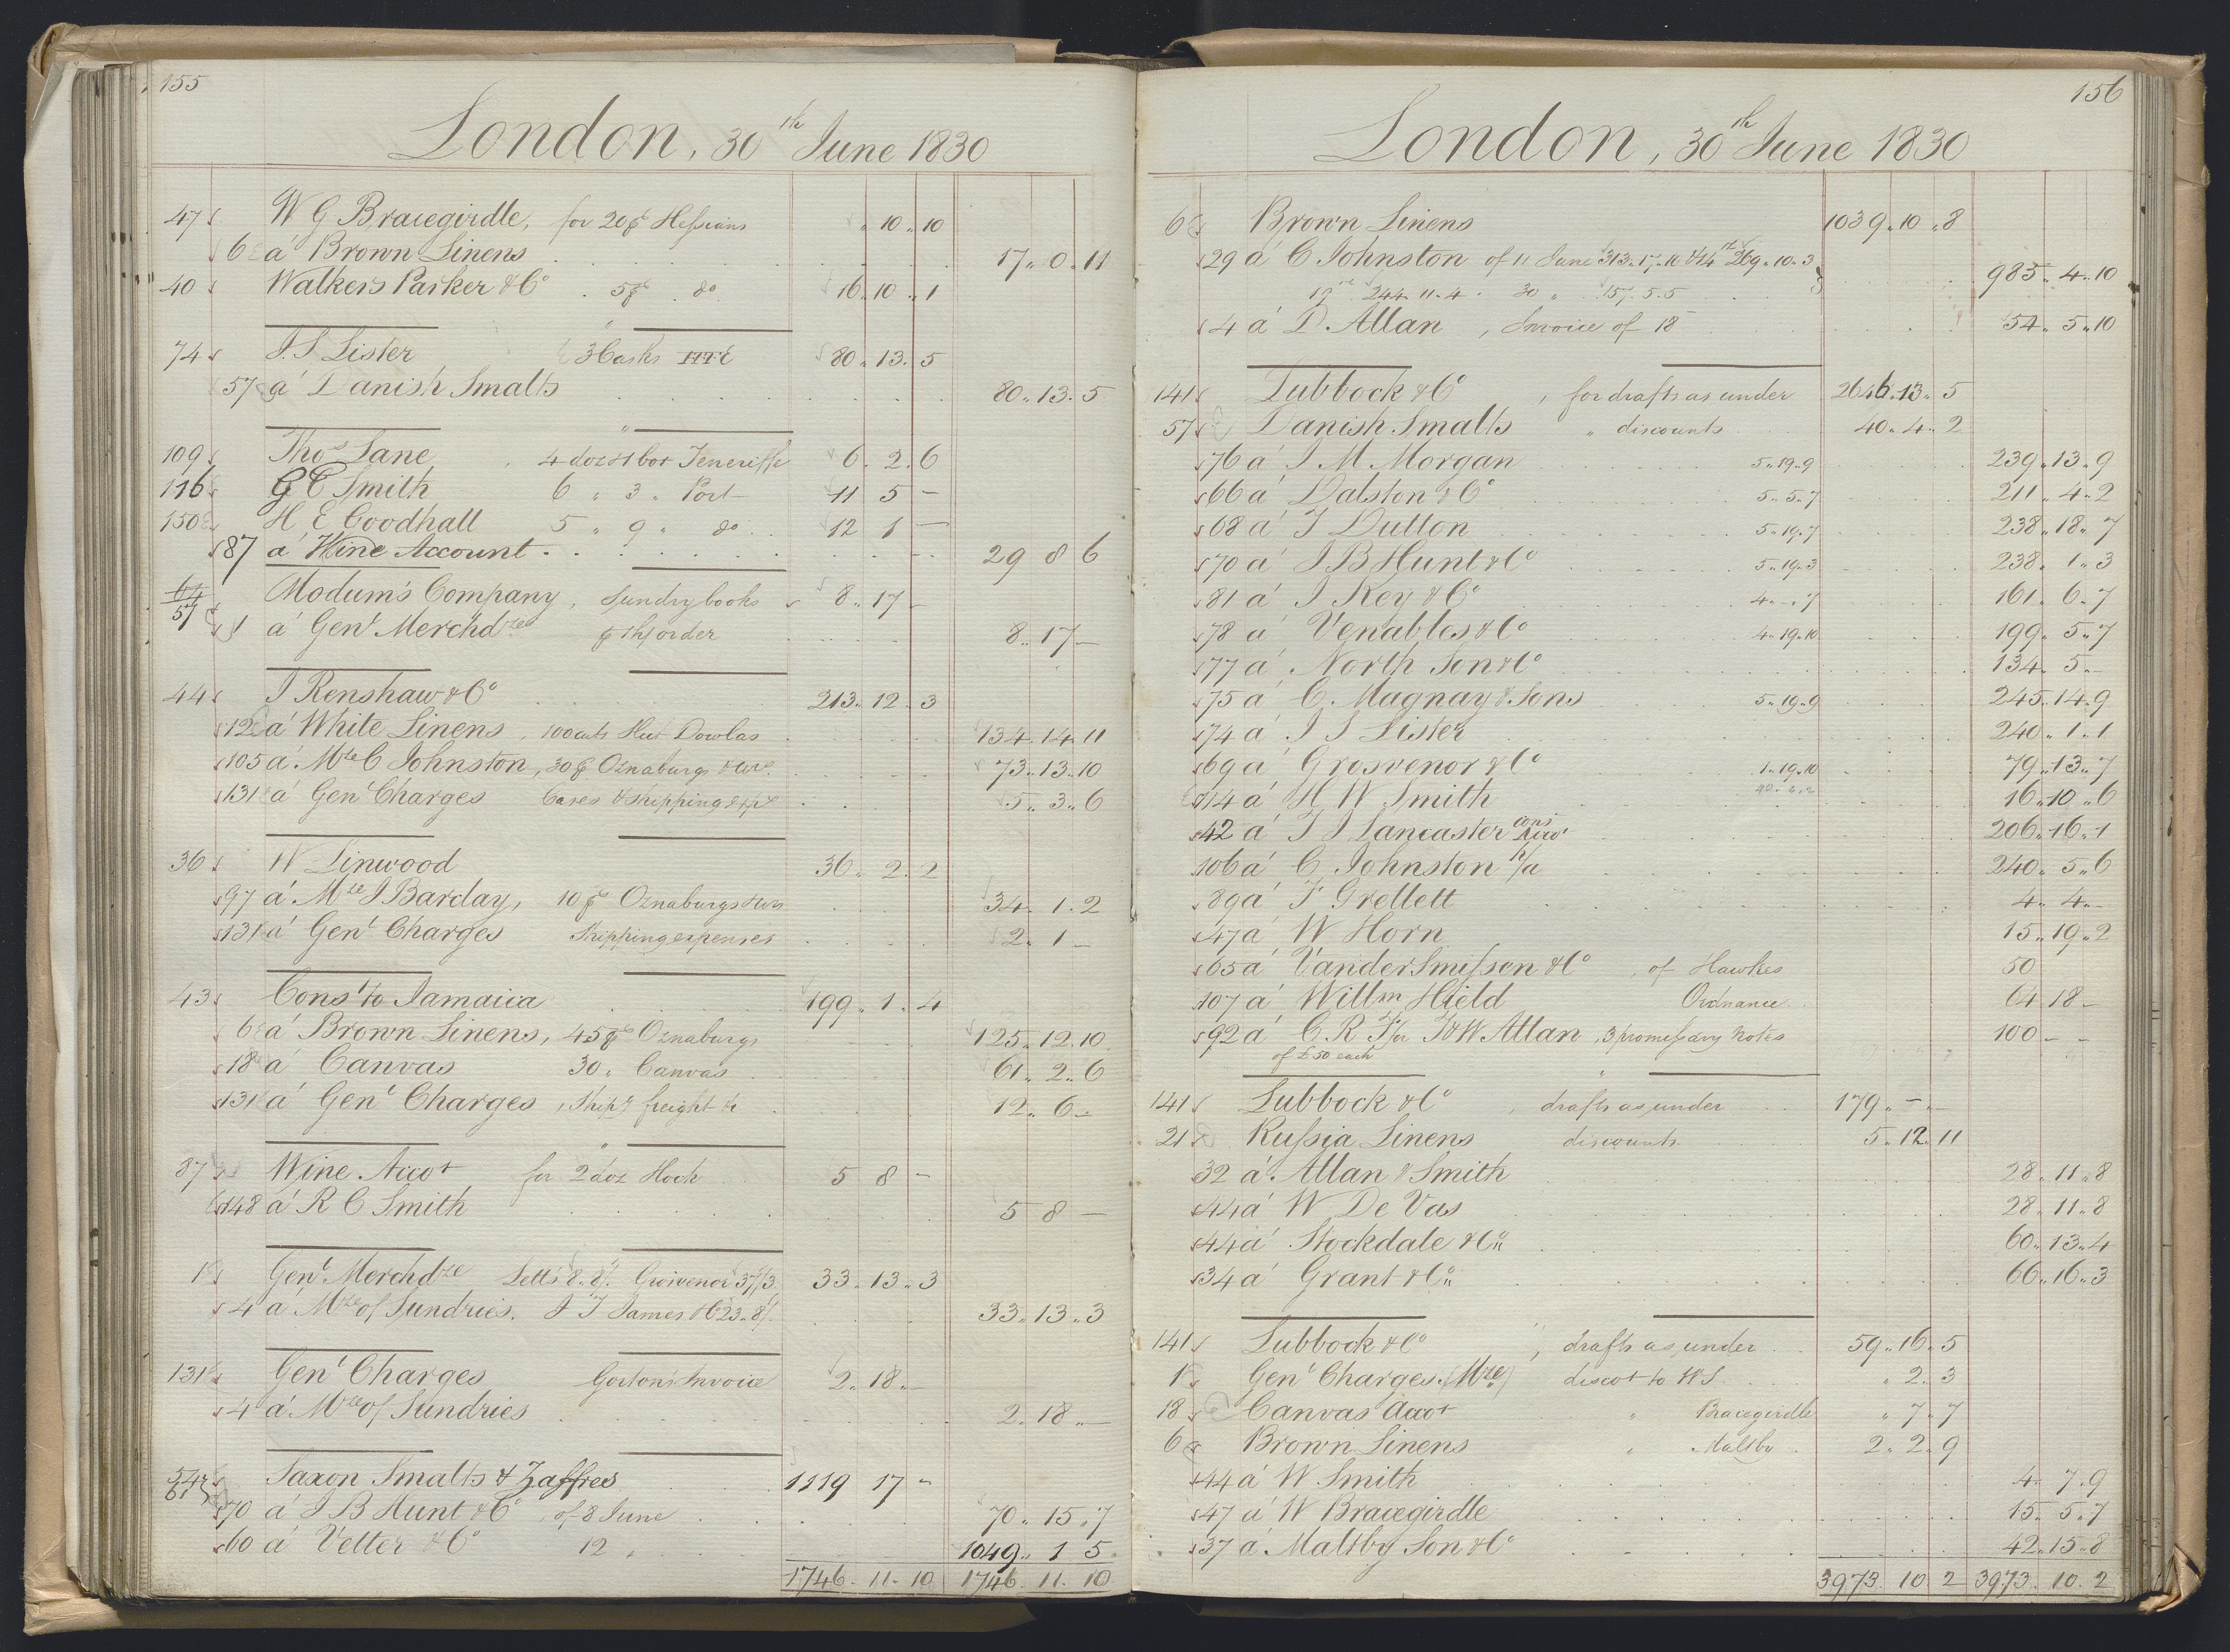 155
London, 30th June 1830
47 W G Bracegirdle, for 20 ps Hessians " 10 " 10
6 a Brown Linens 17 " 0 " 11
40 Walkers Parker & Co 5 ps do 16 " 10 " 1
74 J. S Lister 3 Casks 80 " 13 " 5
57 a Danish Smalts 80 " 13 " 5
109 Thos Lane, 4 doz & 1 bot Teneriffe 6 " 2 " 6
116 G C Smith 6 " 3 " Port 11 5 –
150 H E Goodhall 5 " 9 " do 12 1 –
87 a Wine Account 29 8 6
64 57 Modum's Company, Sundry books 8 " 17 –
1 a Genl Merchdze order 8 " 17 –
44 J Renshaw & Co 213 " 12 " 3
12 a White Linens, 100 cuts Dowlas 134 " 14 " 11
105 a Mze C Johnston, 30 ps Oznaburgs 73 " 13 " 10
131 a Genl Charges Cases & shipping exps 5 " 3 " 6
36 W Linwood 36 " 2 " 2
97 a Mze J Barclay, 10 ps Oznaburgs 34 " 1 " 2
131 a Genl Charges Shipping expenses 2 " 1 –
43 Const to Jamaica 199 " 1 " 4
6 a Brown Linens, 45 ps Oznaburgs 125 " 12 " 10
18 a Canvas 30 " Canvas 61 " 2 " 6
131 a Genl Charges, Shipg freight &c 12 " 6 –
87 Wine Accot for 2 doz Hock 5 8 –
148 a R C Smith 5 8 –
1 Genl Merchdze Letts 8 " 8/. Grosvenor 37/3 33 " 13 " 3
4 a Mze of Sundries. J T James & Co 23 " 8/. 33 " 13 " 3
131 Genl Charges Gorton's Invoice 2 " 18 " –
4 a Mze of Sundries 2 " 18 " –
54 61 Saxon Smalts & Zaffres 1119 17 –
70 a J B Hunt & Co of 8 June 70 " 15 " 7
60 a Vetter & Co 12 " 1049 " 1 5
1746 " 11 " 10 1746 " 11 " 10
156
London, 30th June 1830
6 Brown Linens 1039 " 10 " 8
29 a C Johnston of 11 June 313 " 17 " 10 & 14th 269 " 10 " 3
19 244 " 11 " 4 " 30 " 157 " 5 " 5 985 " 4 " 10
4 a D. Allan, Invoice of 18 54 " 5 " 10
141 Lubbock & Co, for drafts as under 2646 " 13 " 5
57 Danish Smalts " discounts 40 " 4 " 2
76 a J M Morgan 5 " 19 " 9 239 " 13 " 9
66 a Dalston & Co 5 " 5 " 7 211 " 4 " 2
68 a J Dutton 5 " 19 " 7 238 " 18 " 7
70 a J B Hunt & Co 5 " 19 " 3 238 " 1 " 3
81 a J Key & Co 4 " – " 7 161 " 6 " 7
78 a Venables & Co 4 " 19 " 10 199 " 5 " 7
77 a North Son & Co 134 " 5 " –
75 a C. Magnay & Sons 5 " 19 " 9 245 " 14 " 9
74 a J S Lister 240 " 1 " 1
69 a Grosvenor & Co 1 " 19 " 10 79 " 13 " 7
14 a H W Smith 40 " 4 " 2 16 " 10 " 6
42 a T J Lancaster cons 206 " 16 " 1
106 a C Johnston h/a 240 " 5 " 6
89 a F Grellett 4 " 4 " –
47 a W Horn 15 " 19 " 2
65 a VanderSmissen & Co, of Hawkes 50
107 a Willm Hield Ordnance 64 18 –
92 a C. R T for J & W Allan, 3 promissary Notes 100 – –
of £50 each
141 Lubbock & Co, drafts as under 179 " – " –
21 Russia Linens discounts 5 " 12 " 11
32 a Allan & Smith 28 " 11 " 8
44 a W De Vas 28 " 11 " 8
44 a Stockdale & Co 60 " 13 " 4
34 a Grant & Co 66 " 16 " 3
141 Lubbock & Co, drafts as under 59 " 16 " 5
1 Genl Charges (Mze) discot to WS " 2 " 3
18 Canvas Accot " Bracegirdle " 7 " 7
6 Brown Linens " Maltby 2 " 2 " 9
44 a W Smith 4 " 7 " 9
47 a W Bracegirdle 15 " 5 " 7
37 a Maltby Son & Co 42 " 15 " 8
3973 " 10 " 2 3973 " 10 " 2